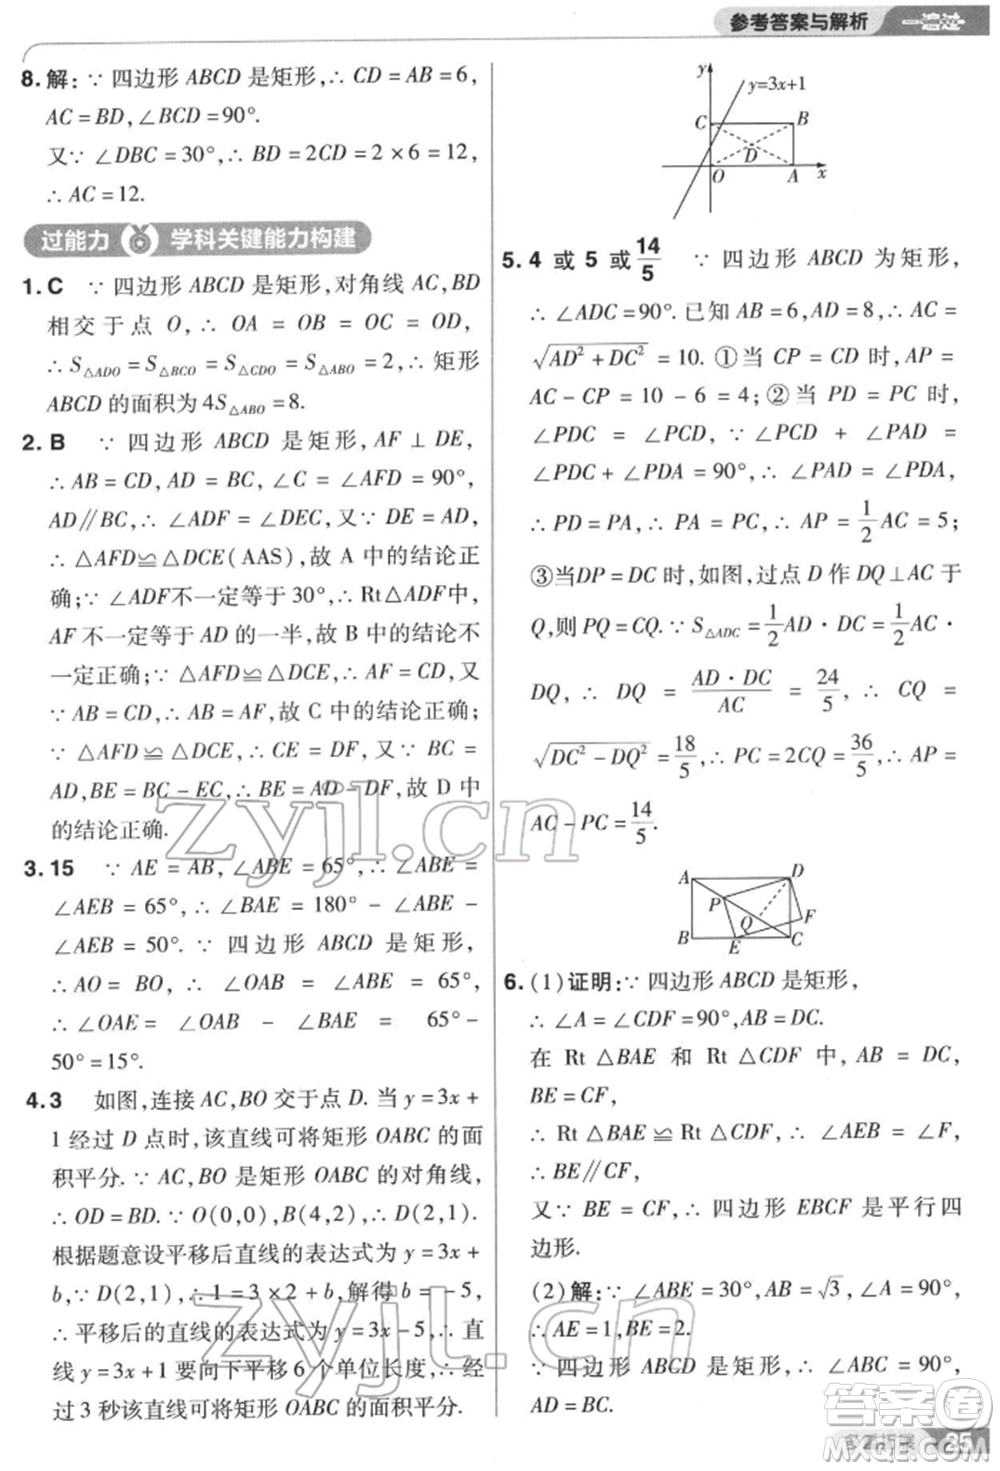 参考答案与解析 一遍过
8.解:∵ 四边形 ABCD 是矩形,∴ CD=AB=6,
AC=BD,∠BCD=90°.
又∵ ∠DBC=30°,∴ BD=2CD=2×6=12,
∴ AC=12.
过能力 学科关键能力构建
1.C ∵ 四边形 ABCD 是矩形,对角线 AC,BD
相交于点 O,∴ OA=OB=OC=OD,
∴ S△ADO=S△BCO=S△CDO=S△ABO=2,∴ 矩形
ABCD 的面积为 4S△ABO=8.
2.B ∵ 四边形 ABCD 是矩形,AF⊥DE,
∴ AB=CD,AD=BC,∠C=∠AFD=90°,
AD∥BC,∴ ∠ADF=∠DEC,又∵ DE=AD,
∴ △AFD≌△DCE(AAS),故 A 中的结论正
确;∵ ∠ADF不一定等于30°,∴ Rt△ADF中,
AF 不一定等于 AD 的一半,故 B 中的结论不
一定正确;∵ △AFD≌△DCE,∴ AF=CD,又
∵ AB=CD,∴ AB=AF,故 C 中的结论正确;
∵ △AFD≌△DCE,∴ CE=DF,又∵ BC=
AD,BE=BC-EC,∴ BE=AD-DF,故 D 中
的结论正确.
3.15 ∵ AE=AB,∠ABE=65°,∴ ∠ABE=
∠AEB=65°,∴ ∠BAE=180°-∠ABE-
∠AEB=50°. ∵ 四边形 ABCD 是矩形,
∴ AO=BO,∴ ∠OAB=∠ABE=65°,
∴ ∠OAE=∠OAB-∠BAE=65°-
50°=15°.
4.3 如图,连接 AC,BO 交于点 D. 当 y=3x+
1 经过 D 点时,该直线可将矩形 OABC 的面
积平分. ∵ AC,BO 是矩形 OABC 的对角线,
∴ OD=BD. ∵ O(0,0),B(4,2),∴ D(2,1).
根据题意设平移后直线的表达式为 y=3x+
b,∵ D(2,1),∴ 1=3×2+b,解得 b=-5,
∴ 平移后的直线的表达式为 y=3x-5,∴ 直
线 y=3x+1 要向下平移 6 个单位长度,∴ 经
过 3 秒该直线可将矩形 OABC 的面积平分.
y y=3x+1
C B
D
O A x
5.4 或 5 或 14/5 ∵ 四边形 ABCD 为矩形,
∴ ∠ADC=90°. 已知 AB=6,AD=8,∴ AC=
√(AD²+DC²)=10. ①当 CP=CD 时,AP=
AC-CP=10-6=4;②当 PD=PC 时,
∠PDC=∠PCD,∵ ∠PCD+∠PAD=
∠PDC+∠PDA=90°,∴ ∠PAD=∠PDA,
∴ PD=PA,∴ PA=PC,∴ AP=1/2AC=5;
③当DP=DC 时,如图,过点 D 作 DQ⊥AC 于
Q,则 PQ=CQ. ∵ S△ADC=1/2AD·DC=1/2AC·
DQ,∴ DQ=AD·DC/AC=24/5,∴ CQ=
√(DC²-DQ²)=18/5,∴ PC=2CQ=36/5,∴ AP=
AC-PC=14/5.
A D
P
Q F
B E C
6.(1)证明:∵ 四边形 ABCD 是矩形,
∴ ∠A=∠CDF=90°,AB=DC.
在 Rt△BAE 和 Rt△CDF 中,AB=DC,
BE=CF,
∴ Rt△BAE≌Rt△CDF,∴ ∠AEB=∠F,
∴ BE∥CF,
又∵ BE=CF,∴ 四边形 EBCF 是平行四
边形.
(2)解:∵ ∠ABE=30°,AB=√3,∠A=90°,
∴ AE=1,BE=2.
∵ 四边形 ABCD 是矩形,∴ ∠ABC=90°,
AD=BC.
zyjl.cn
zyjl.cn
答案圈
MXQE.COM